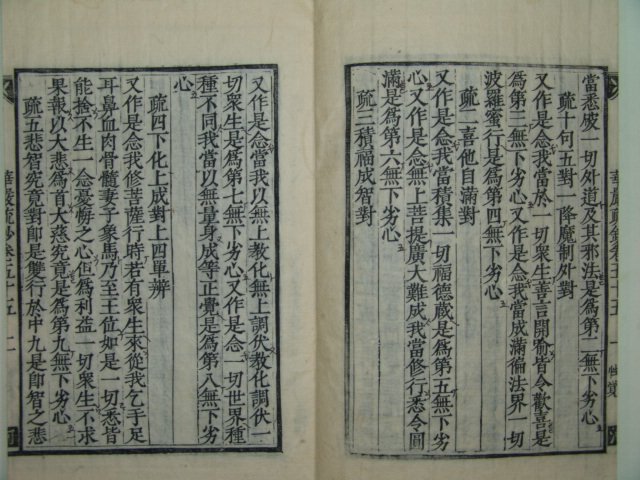 當悉破一切外道及其邪法是爲第二無下劣心
疏十句五對一降魔制外對
又作是念我當於一切衆生善言開喻皆令歡喜是
爲第三無下劣心又作是念我當成滿徧法界一切
波羅蜜行是爲第四無下劣心
疏二喜他自滿對
又作是念我當積集一切福德藏是爲第五無下劣
心又作是念無上菩提廣大難成我當修行悉令圓
滿是爲第六無下劣心
疏三積福成智對
又作是念當我以無上教化無上調伏教化調伏一
切衆生是爲第七無下劣心又作是念一切世界種
種不同我當以無量身成等正覺是爲第八無下劣
心
疏四下化上成對上四單辨
又作是念我修菩薩行時若有衆生來從我乞手足
耳鼻血肉骨髓妻子象馬乃至王位如是一切悉皆
能捨不生一念憂悔之心但爲利益一切衆生不求
果報以大悲爲首大慈究竟是爲第九無下劣心
疏五悲智究竟對即是雙行於中九是即智之悲
華嚴疏鈔卷五十五 二